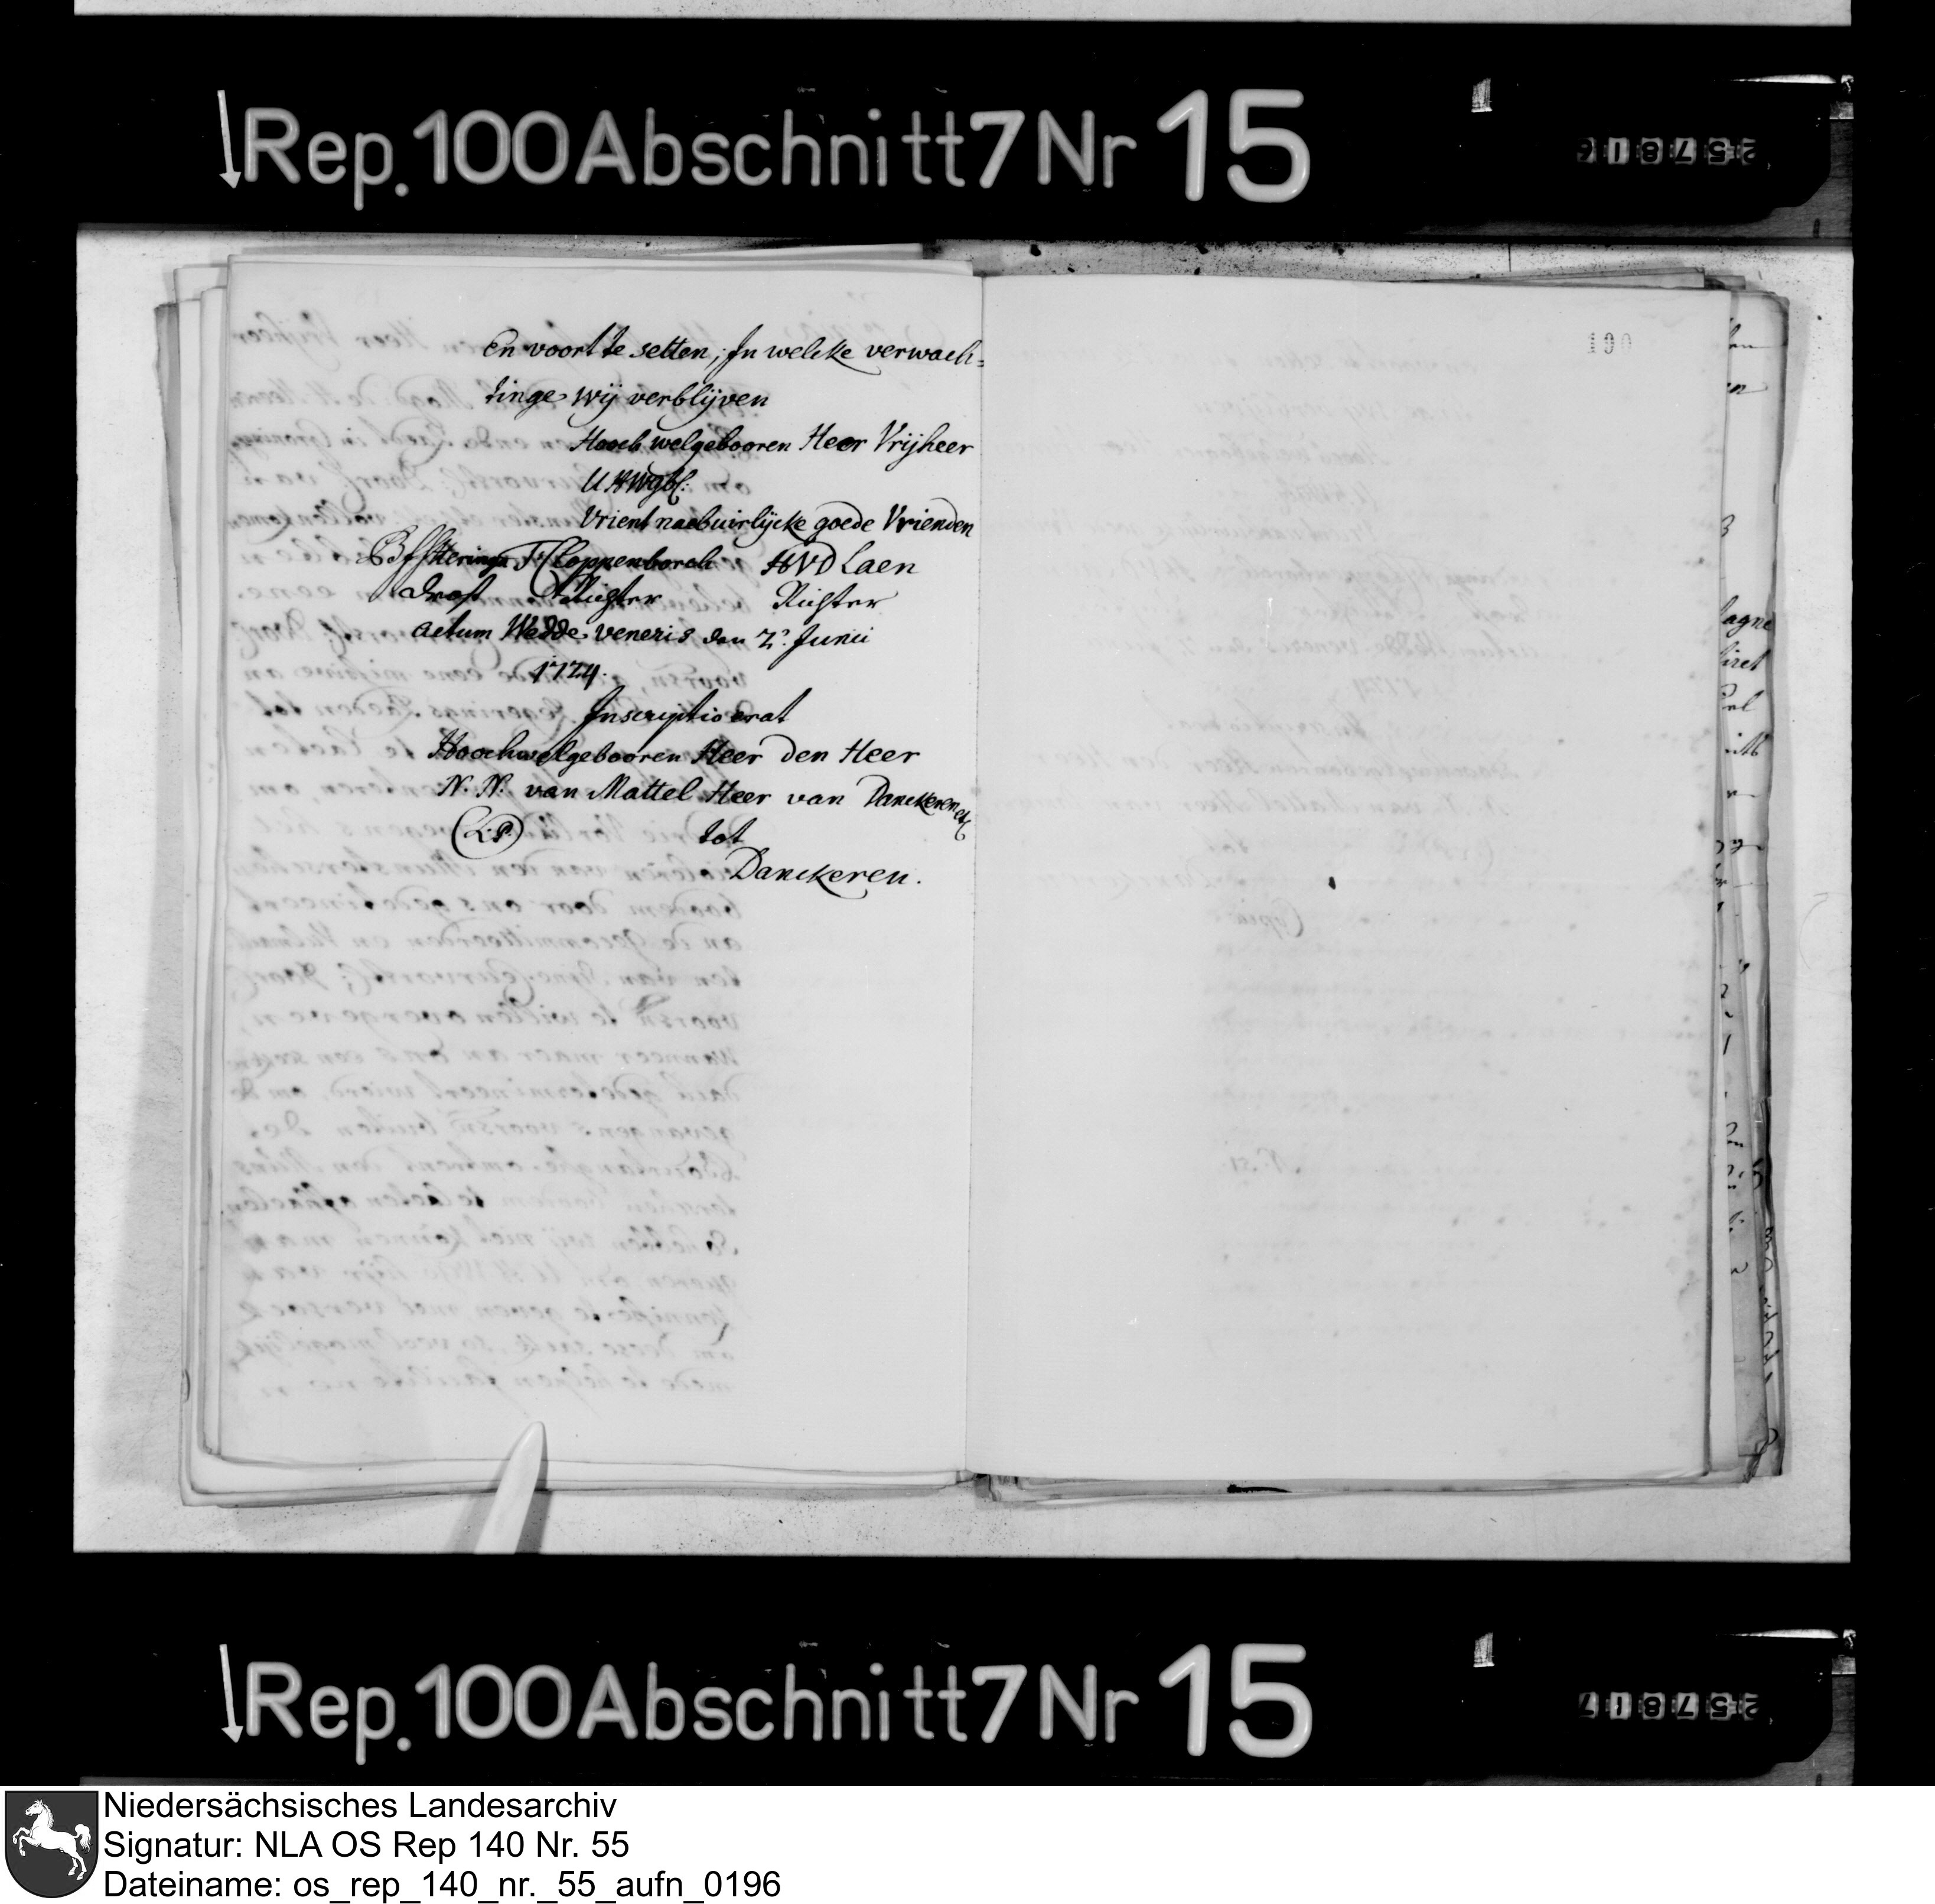 Rep. 100 Abschnitt 7 Nr 15
190
en voort te setten; In welcke verwach=
tinge wij verblijven
Hooch welgebooren Heer Vrijheer
UHWgb:
Vrient nabuirlijcke goede Vrienden
Cloppenborch HVD Laen
Drost Richter Richter
actum Wedde veneris den 2 Junii
1724.
Inscriptio erat
Hoochwelgebooren Heer den Heer
N. N. van Mattel Heer van Danckeren etc
(L.S.) tot
Danckeren.
Rep. 100 Abschnitt 7 Nr 15
Niedersächsisches Landesarchiv
Signatur: NLA OS Rep 140 Nr. 55
Dateiname: os_rep_140_nr._55_aufn_0196